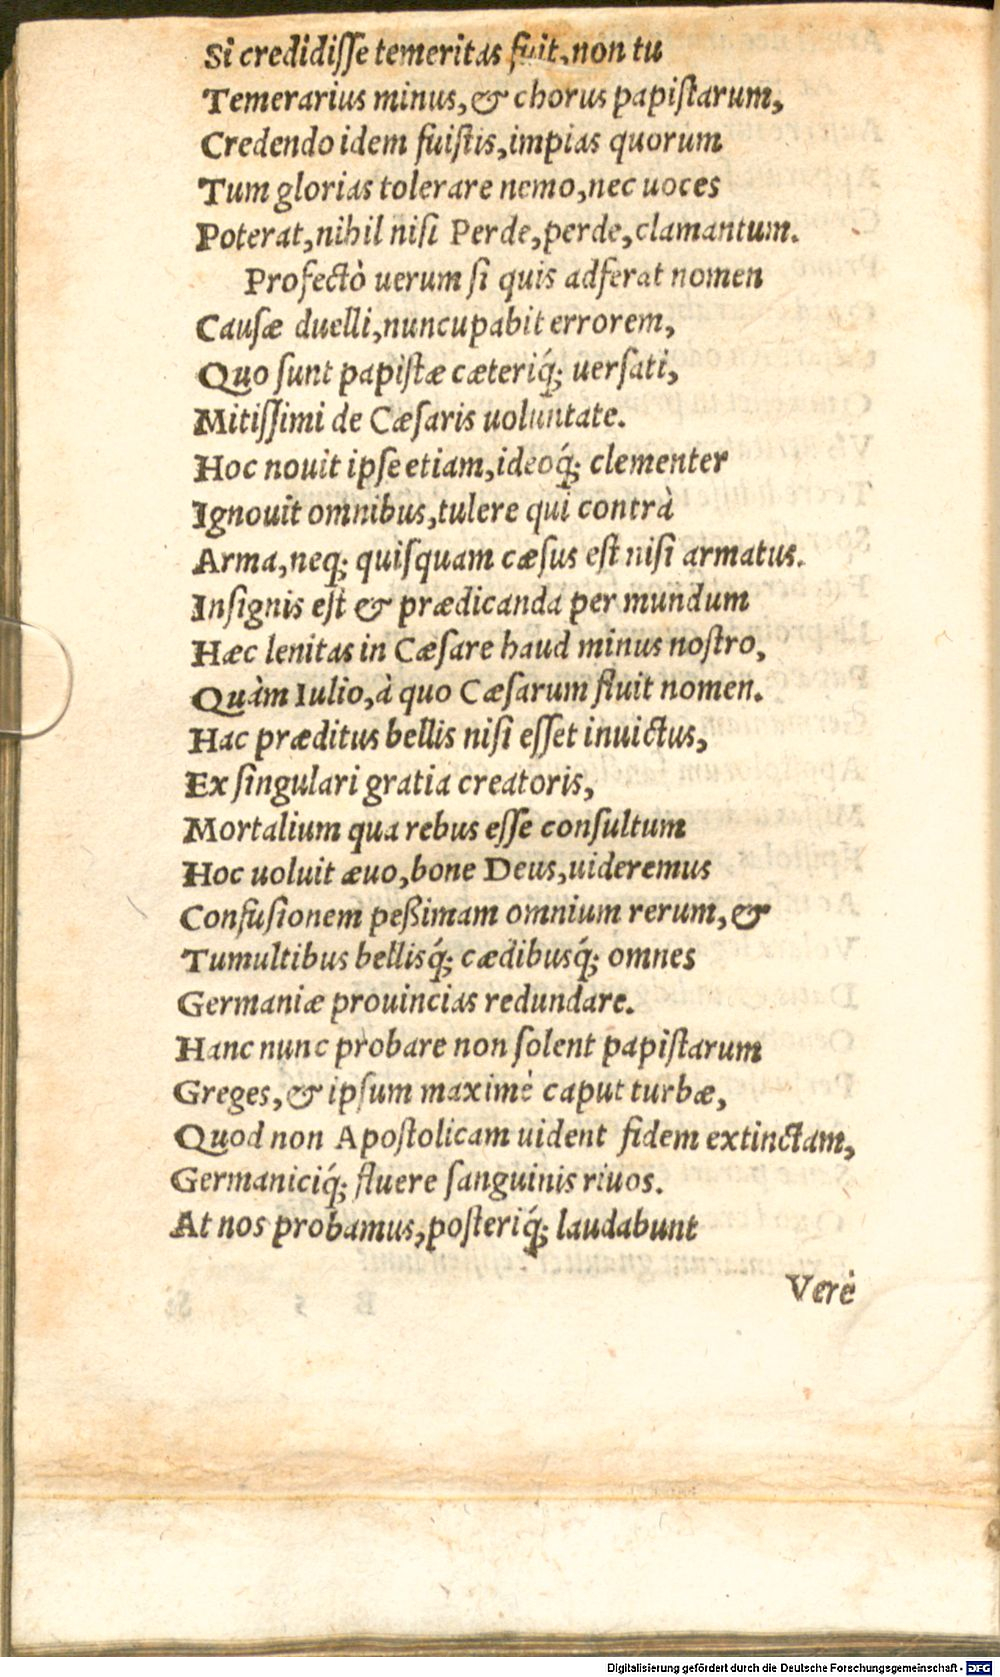 Si credidiſſe temeritas fuit, non tu
Temerarius minus, & chorus papiſtarum,
Credendo idem fuiſtis, impias quorum
Tum glorias tolerare nemo, nec uoces
Poterat, nihil niſi Perde, perde, clamantum.
Profectò uerum ſi quis adferat nomen
Cauſæ duelli, nuncupabit errorem,
Quo ſunt papiſtæ cæteriq́; uerſati,
Mitiſſimi de Cæſaris uoluntate.
Hoc nouit ipſe etiam, ideoq́; clementer
Ignouit omnibus, tulere qui contrà
Arma, neq; quiſquam cæſus eſt niſi armatus.
Inſignis eſt & prædicanda per mundum
Hæc lenitas in Cæſare haud minus noſtro,
Quàm Iulio, à quo Cæſarum fluit nomen.
Hac præditus bellis niſi eſſet inuictus,
Ex ſingulari gratia creatoris,
Mortalium qua rebus eſſe conſultum
Hoc uoluit æuo, bone Deus, uideremus
Confuſionem peßimam omnium rerum, &
Tumultibus bellisq́; cædibusq́; omnes
Germaniæ prouincias redundare.
Hanc nunc probare non ſolent papiſtarum
Greges, & ipſum maximè caput turbæ,
Quod non Apoſtolicam uident fidem extinctam,
Germaniciq́; fluere ſanguinis riuos.
At nos probamus, poſteriq́; laudabunt
Verè
Digitalisierung gefördert durch die Deutsche Forschungsgemeinschaft - DFG